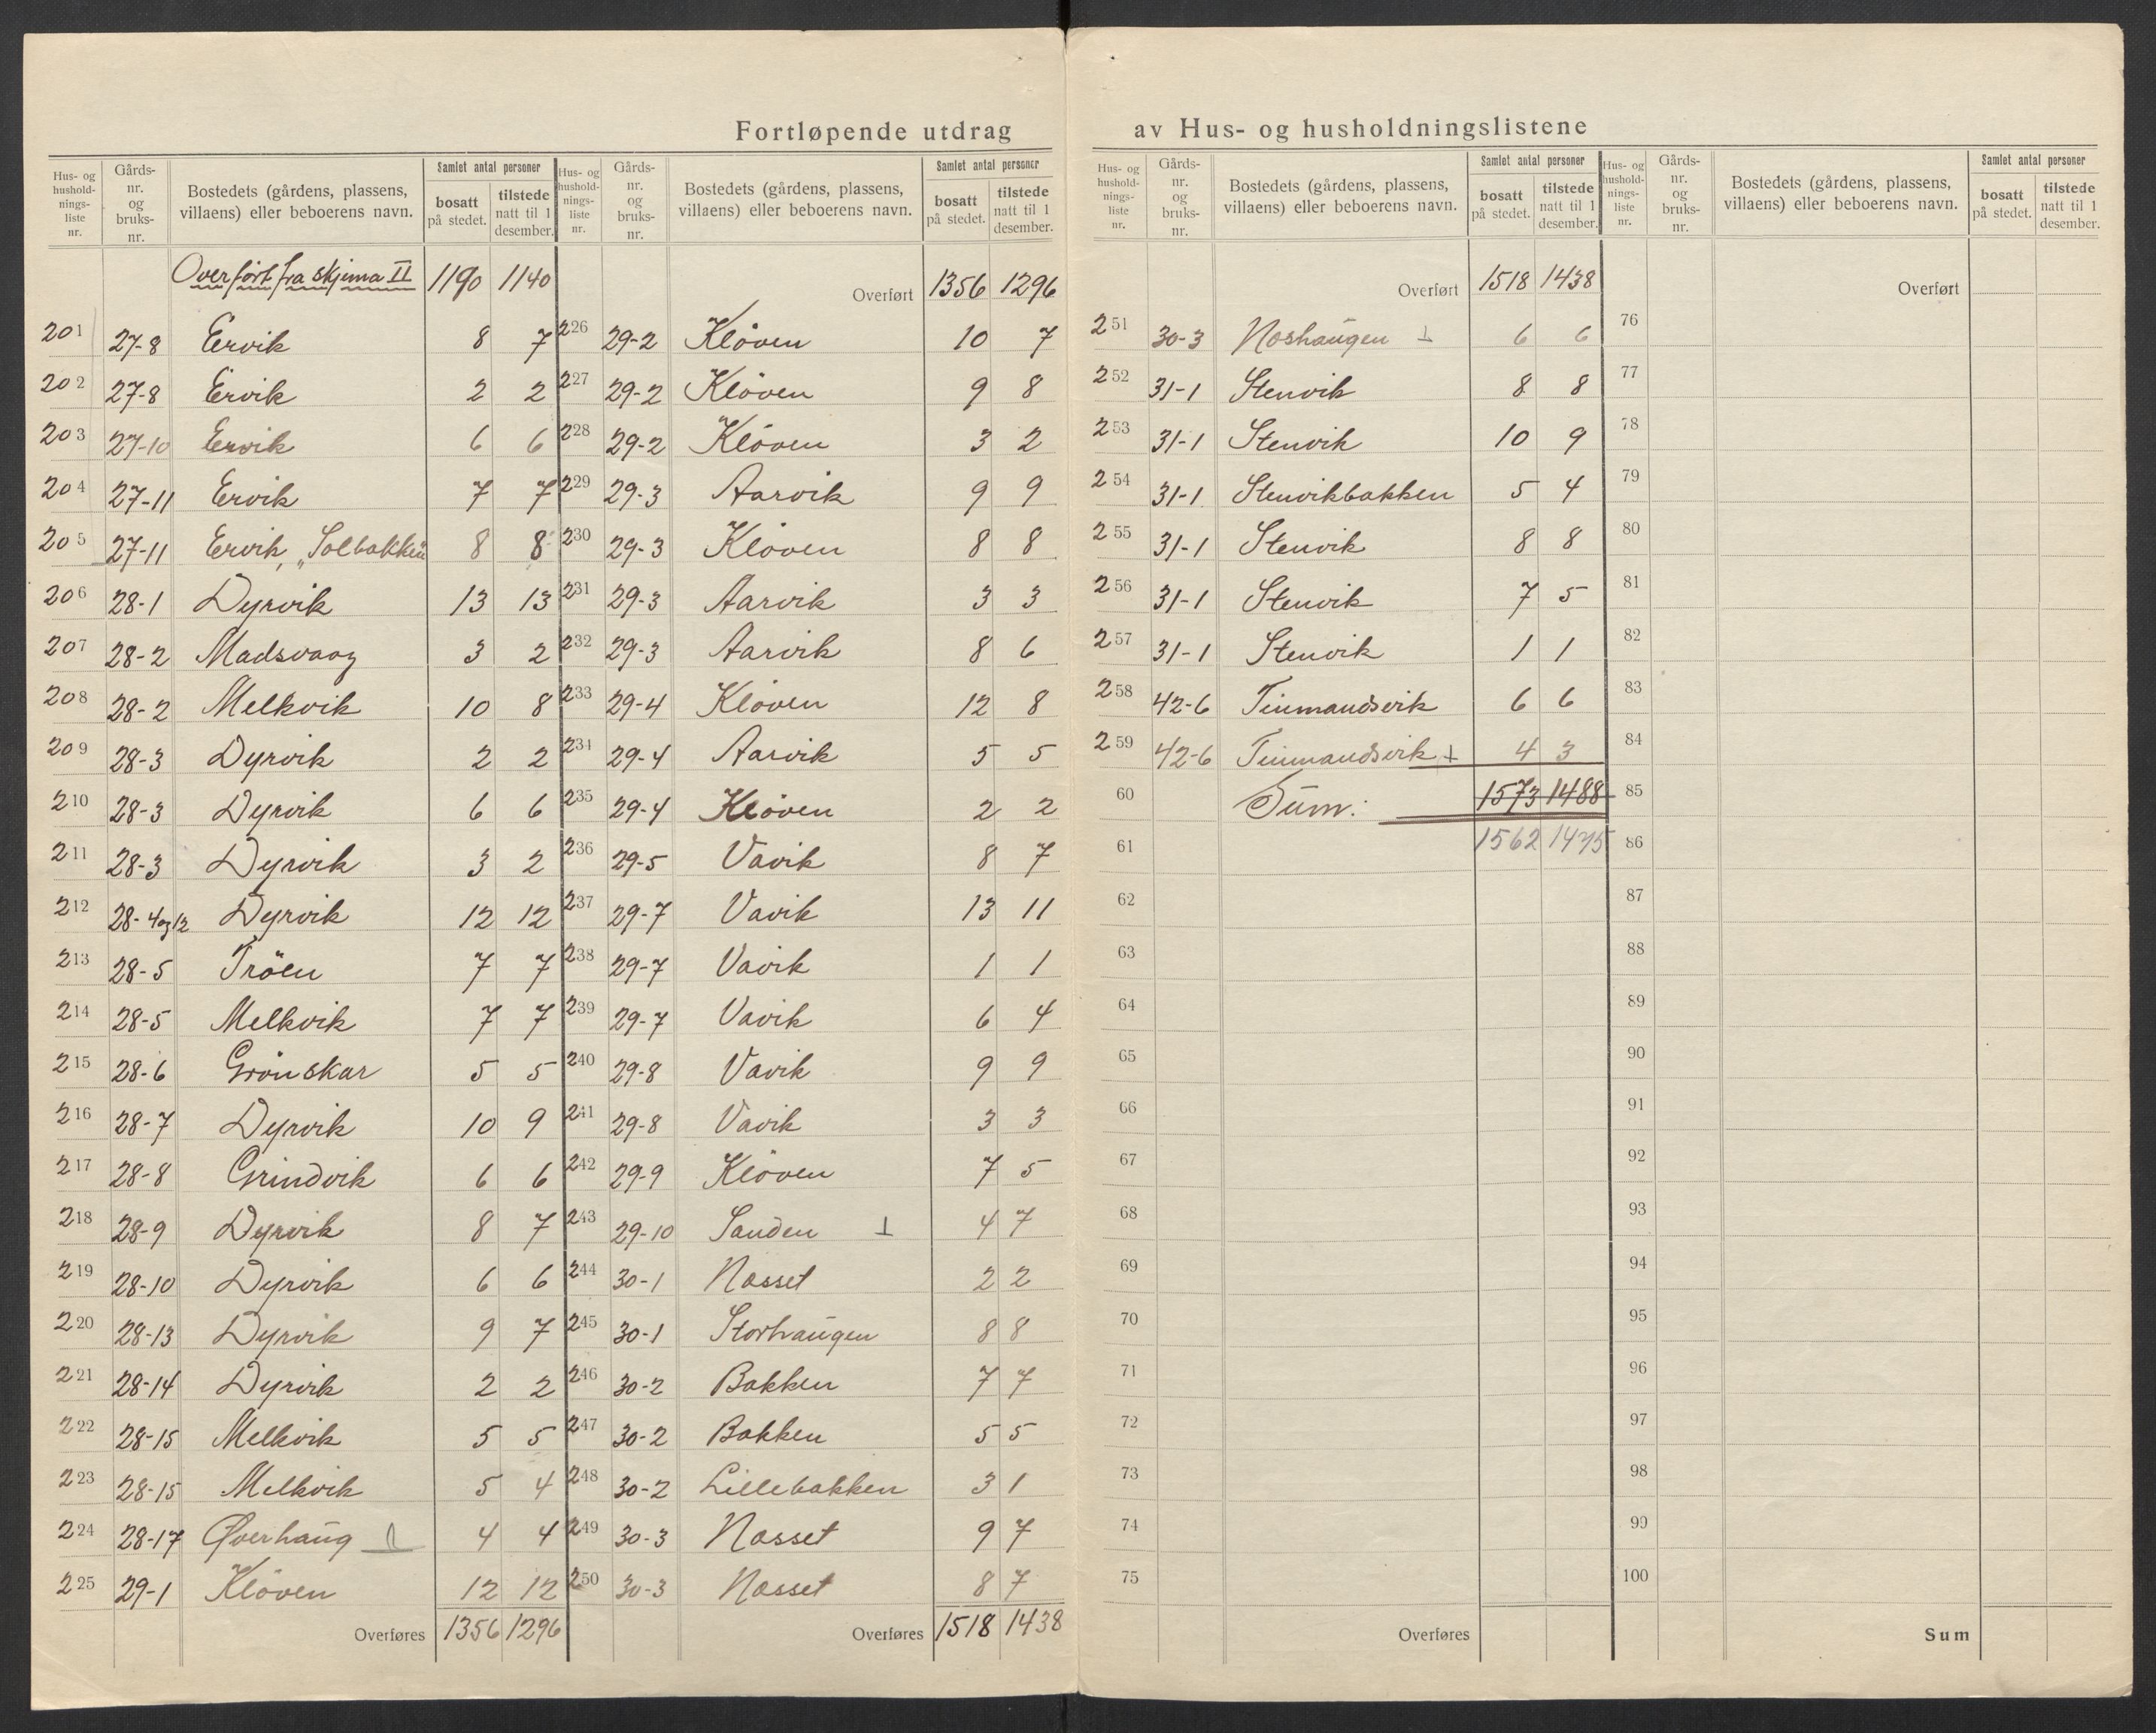 Fortløpende utdrag av Hus- og husholdningslistene
Hus- og husholdnings-liste nr. | Gårds-nr. og bruks-nr. | Bostedets (gårdens, plassens, villaens) eller beboerens navn. | Samlet antal personer | bosatt på stedet. | tilstede natt til 1 desember.
Overført fra skjema II 1190 1140
201 27-8 Ervik 8 7
202 27-8 Ervik 2 2
203 27-10 Ervik 6 6
204 27-11 Ervik 7 7
205 27-11 Ervik, „Solbakken 8 8
206 28-1 Dyrvik 13 13
207 28-2 Madsvaag 3 2
208 28-2 Melkvik 10 8
209 28-3 Dyrvik 2 2
210 28-3 Dyrvik 6 6
211 28-3 Dyrvik 3 2
212 28-4og12 Dyrvik 12 12
213 28-5 Tröen 7 7
214 28-5 Melkvik 7 7
215 28-6 Grönskar 5 5
216 28-7 Dyrvik 10 9
217 28-8 Grindvik 6 6
218 28-9 Dyrvik 8 7
219 28-10 Dyrvik 6 6
220 28-13 Dyrvik 9 7
221 28-14 Dyrvik 2 2
222 28-15 Melkvik 5 5
223 28-15 Melkvik 5 4
224 28-17 Øverhaug ⊥ 4 4
225 29-1 Klöven 12 12
Overføres 1356 1296
Hus- og husholdnings-liste nr. | Gårds-nr. og bruks-nr. | Bostedets (gårdens, plassens, villaens) eller beboerens navn. | Samlet antal personer | bosatt på stedet. | tilstede natt til 1 desember.
Overført 1356 1296
226 29-2 Klöven 10 7
227 29-2 Klöven 9 8
228 29-2 Klöven 3 2
229 29-3 Aarvik 9 9
230 29-3 Klöven 8 8
231 29-3 Aarvik 3 3
232 29-3 Aarvik 8 6
233 29-4 Klöven 12 8
234 29-4 Aarvik 5 5
235 29-4 Klöven 2 2
236 29-5 Vavik 8 7
237 29-7 Vavik 13 11
238 29-7 Vavik 1 1
239 29-7 Vavik 6 4
240 29-8 Vavik 9 9
241 29-8 Vavik 3 3
242 29-9 Klöven 7 5
243 29-10 Sanden ⊥ 4 7
244 30-1 Nasset 2 2
245 30-1 Storhaugen 8 8
246 30-2 Bakken 7 7
247 30-2 Bakken 5 5
248 30-2 Lillebakken 3 1
249 30-3 Nasset 9 7
250 30-3 Nasset 8 7
Overføres 1518 1438
Hus- og husholdnings-liste nr. | Gårds-nr. og bruks-nr. | Bostedets (gårdens, plassens, villaens) eller beboerens navn. | Samlet antal personer | bosatt på stedet. | tilstede natt til 1 desember.
Overført 1518 1438
251 30-3 Noshaugen ⊥ 6 6
252 31-1 Stenvik 8 8
253 31-1 Stenvik 10 9
254 31-1 Stenvikbakken 5 4
255 31-1 Stenvik 8 8
256 31-1 Stenvik 7 5
257 31-1 Stenvik 1 1
258 42-6 Tinmandsvik 6 6
259 42-6 Tinmandsvik ⊥ 4 3
60 Sum: 1573 1488
61 1562 1475
62
63
64
65
66
67
68
69
70
71
72
73
74
75
Overføres
Hus- og husholdnings-liste nr. | Gårds-nr. og bruks-nr. | Bostedets (gårdens, plassens, villaens) eller beboerens navn. | Samlet antal personer | bosatt på stedet. | tilstede natt til 1 desember.
Overført
76
77
78
79
80
81
82
83
84
85
86
87
88
89
90
91
92
93
94
95
96
97
98
99
100
Sum